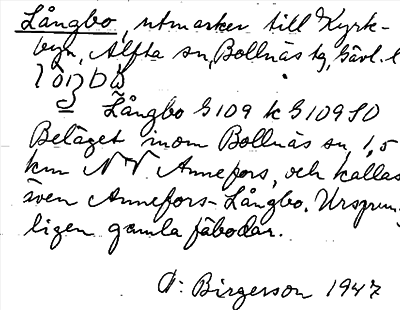 Långbo, utmarker till Kyrk-
byn, Alfta sn, Bollnäs tg, Gävl. l
Långbo G109 k G109 SO
Beläget inom Bollnäs sn, 1,5
km NV. Annefors, och kallas
även Annefors-Långbo. Ursprun-
ligen gamla fäbodar.
Birgerson 1947